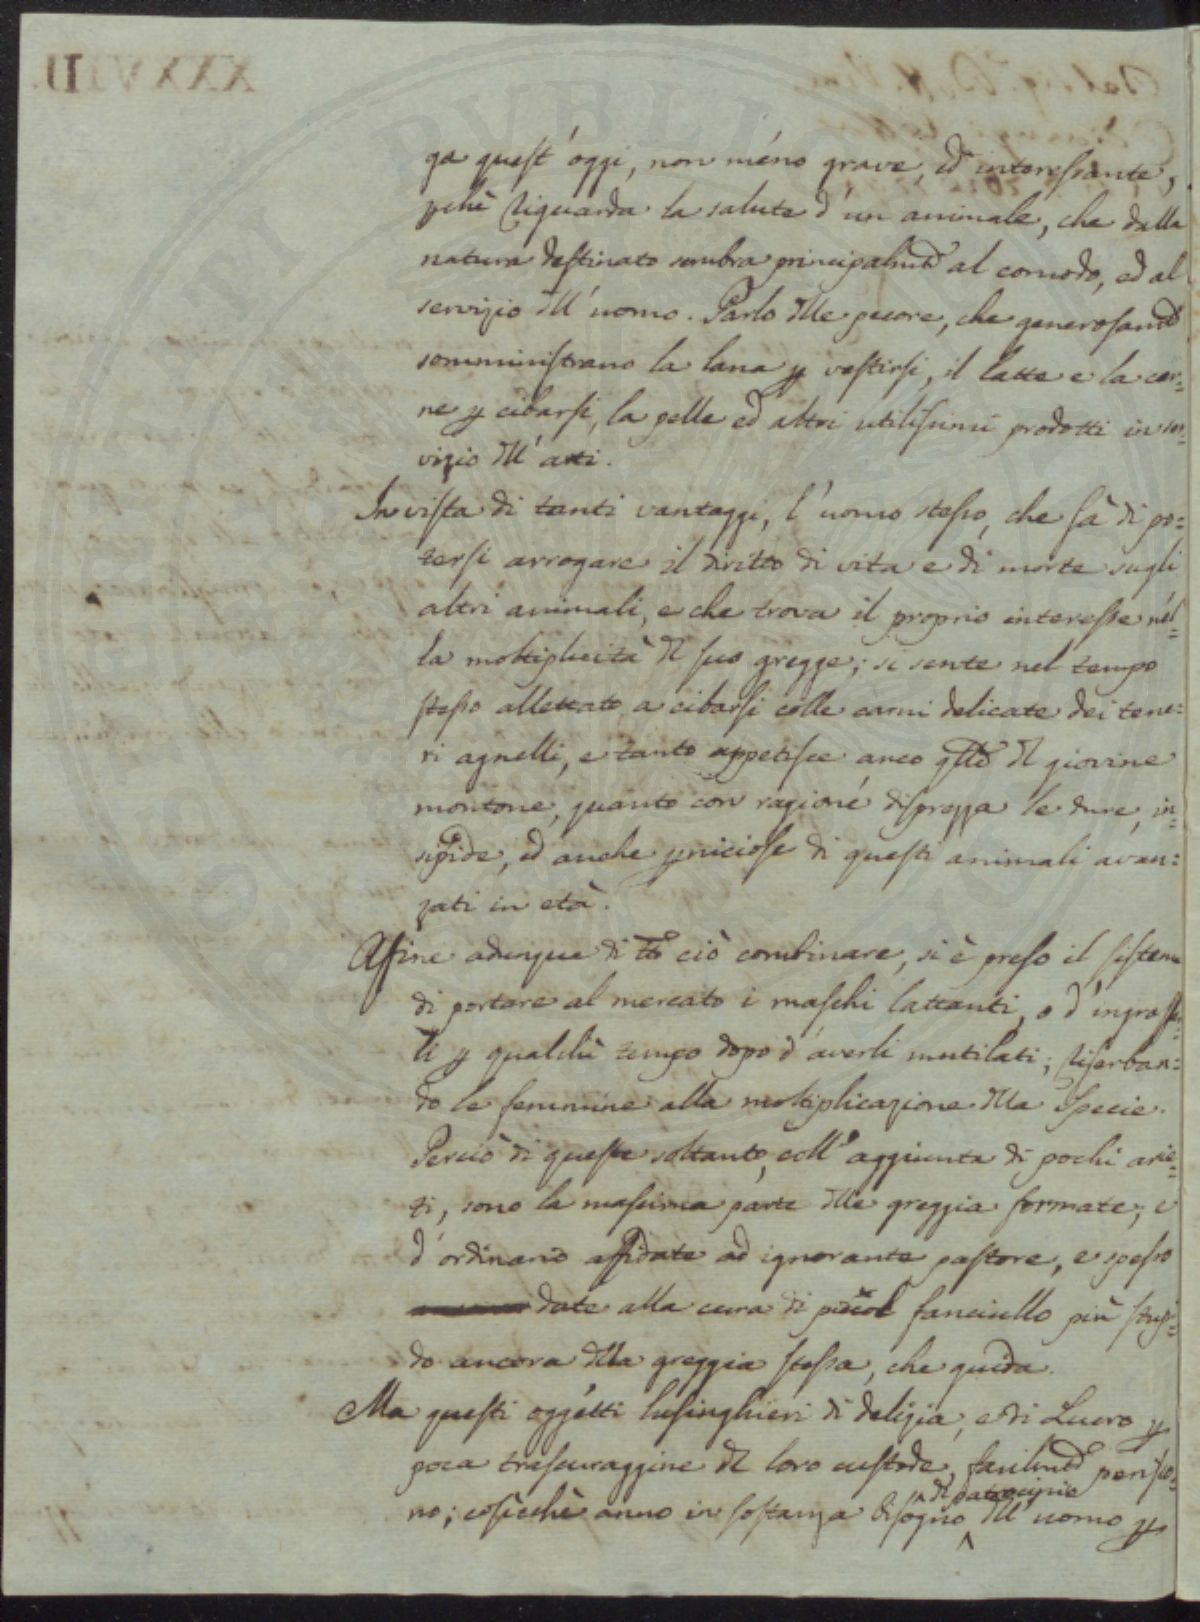 ga quest'oggi, non méno grave, ed interessante,
pchè riguarda la salute d'un animale, che dalla
natura destinato sembra principalmte al comodo, ed al
servizio dll'uomo. Parlo dlle pecore, che generosamte
somministrano la lana p vestirsi, il latte e la car=
ne p cibarsi, la pelle ed altri utilissimi prodotti in ser=
vizio dll'arti.
In vista di tanti vantaggi, l'uomo stesso, che sà di po=
tersi arrogare il diritto di vita e di morte sugli
altri animali, e che trova il proprio interesse nel=
la moltiplicità dl suo gregge; si sente nel tempo
stesso allettato a cibarsi colle carni delicate dei tene=
ri agnelli, e tanto appetisce anco qlle dl giovine
montone, quanto con ragioné disprezza le dure, in=
sipide, ed anche pniciose di questi animali avan=
zati in età.
Affine adunque di tto ciò combinare, si è preso il sistema
di portare al mercato i maschi lattanti, o d'ingrassar=
li p qualchè tempo dopo d'averli mutilati; riserban=
do le femmine alla moltiplicazione dlla Specie.
Perciò di queste soltanto, coll'aggiunta di pochi arie=
ti, sono la massima parte dlle greggia formate; e
d'ordinario affidate ad ignorante pastore, e spesso
date alla cura di picol fanciullo più stupi=
do ancora dlla greggia stessa, che guida.
Ma questi oggétti lusinghieri di delizia, e di Lucro p
poca trascuraggine dl loro custode, facilmte perisco=
no; cosicchè anno in sostanza bisogno dll'uomo p
di patrocinio